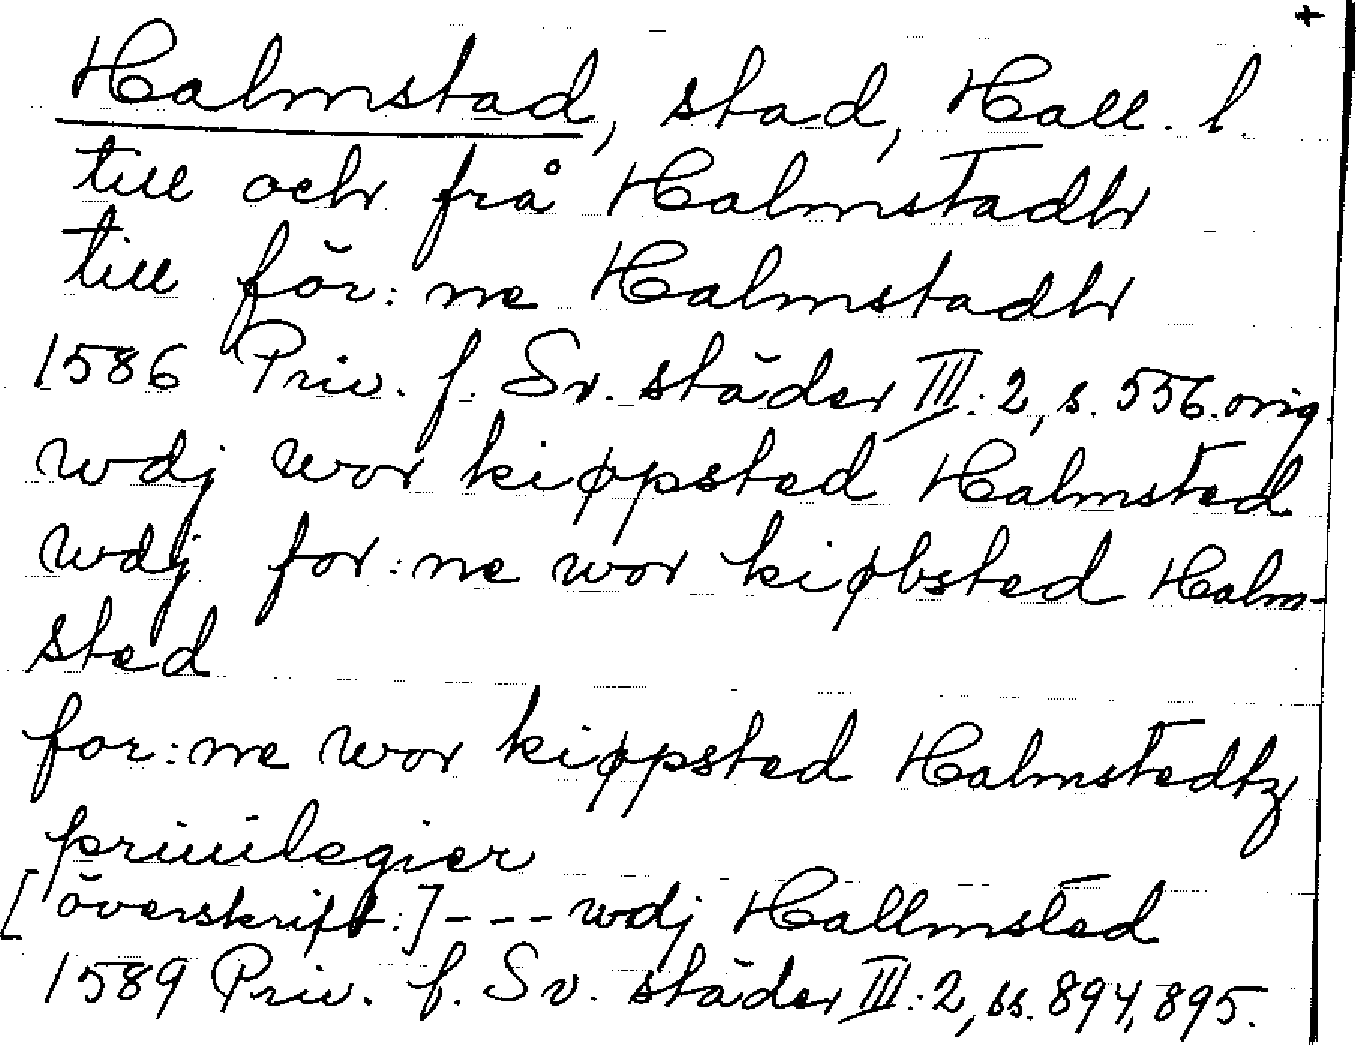 +
Halmstad, stad, Hall. l.
till och frå Halmstadh
till för:ne Halmstadh
1586 Priv. f. Sv. städer III:2, s. 556. orig.
wdj wor kiøpsted Halmsted
wdj for:ne wor kiøbsted Halm-
sted
for:ne wor kiøpsted Halmstedtz
priuilegier
[överskrift:] --- wdj Hallmsted
1589 Priv. f. Sv. städer III:2, ss. 894, 895.